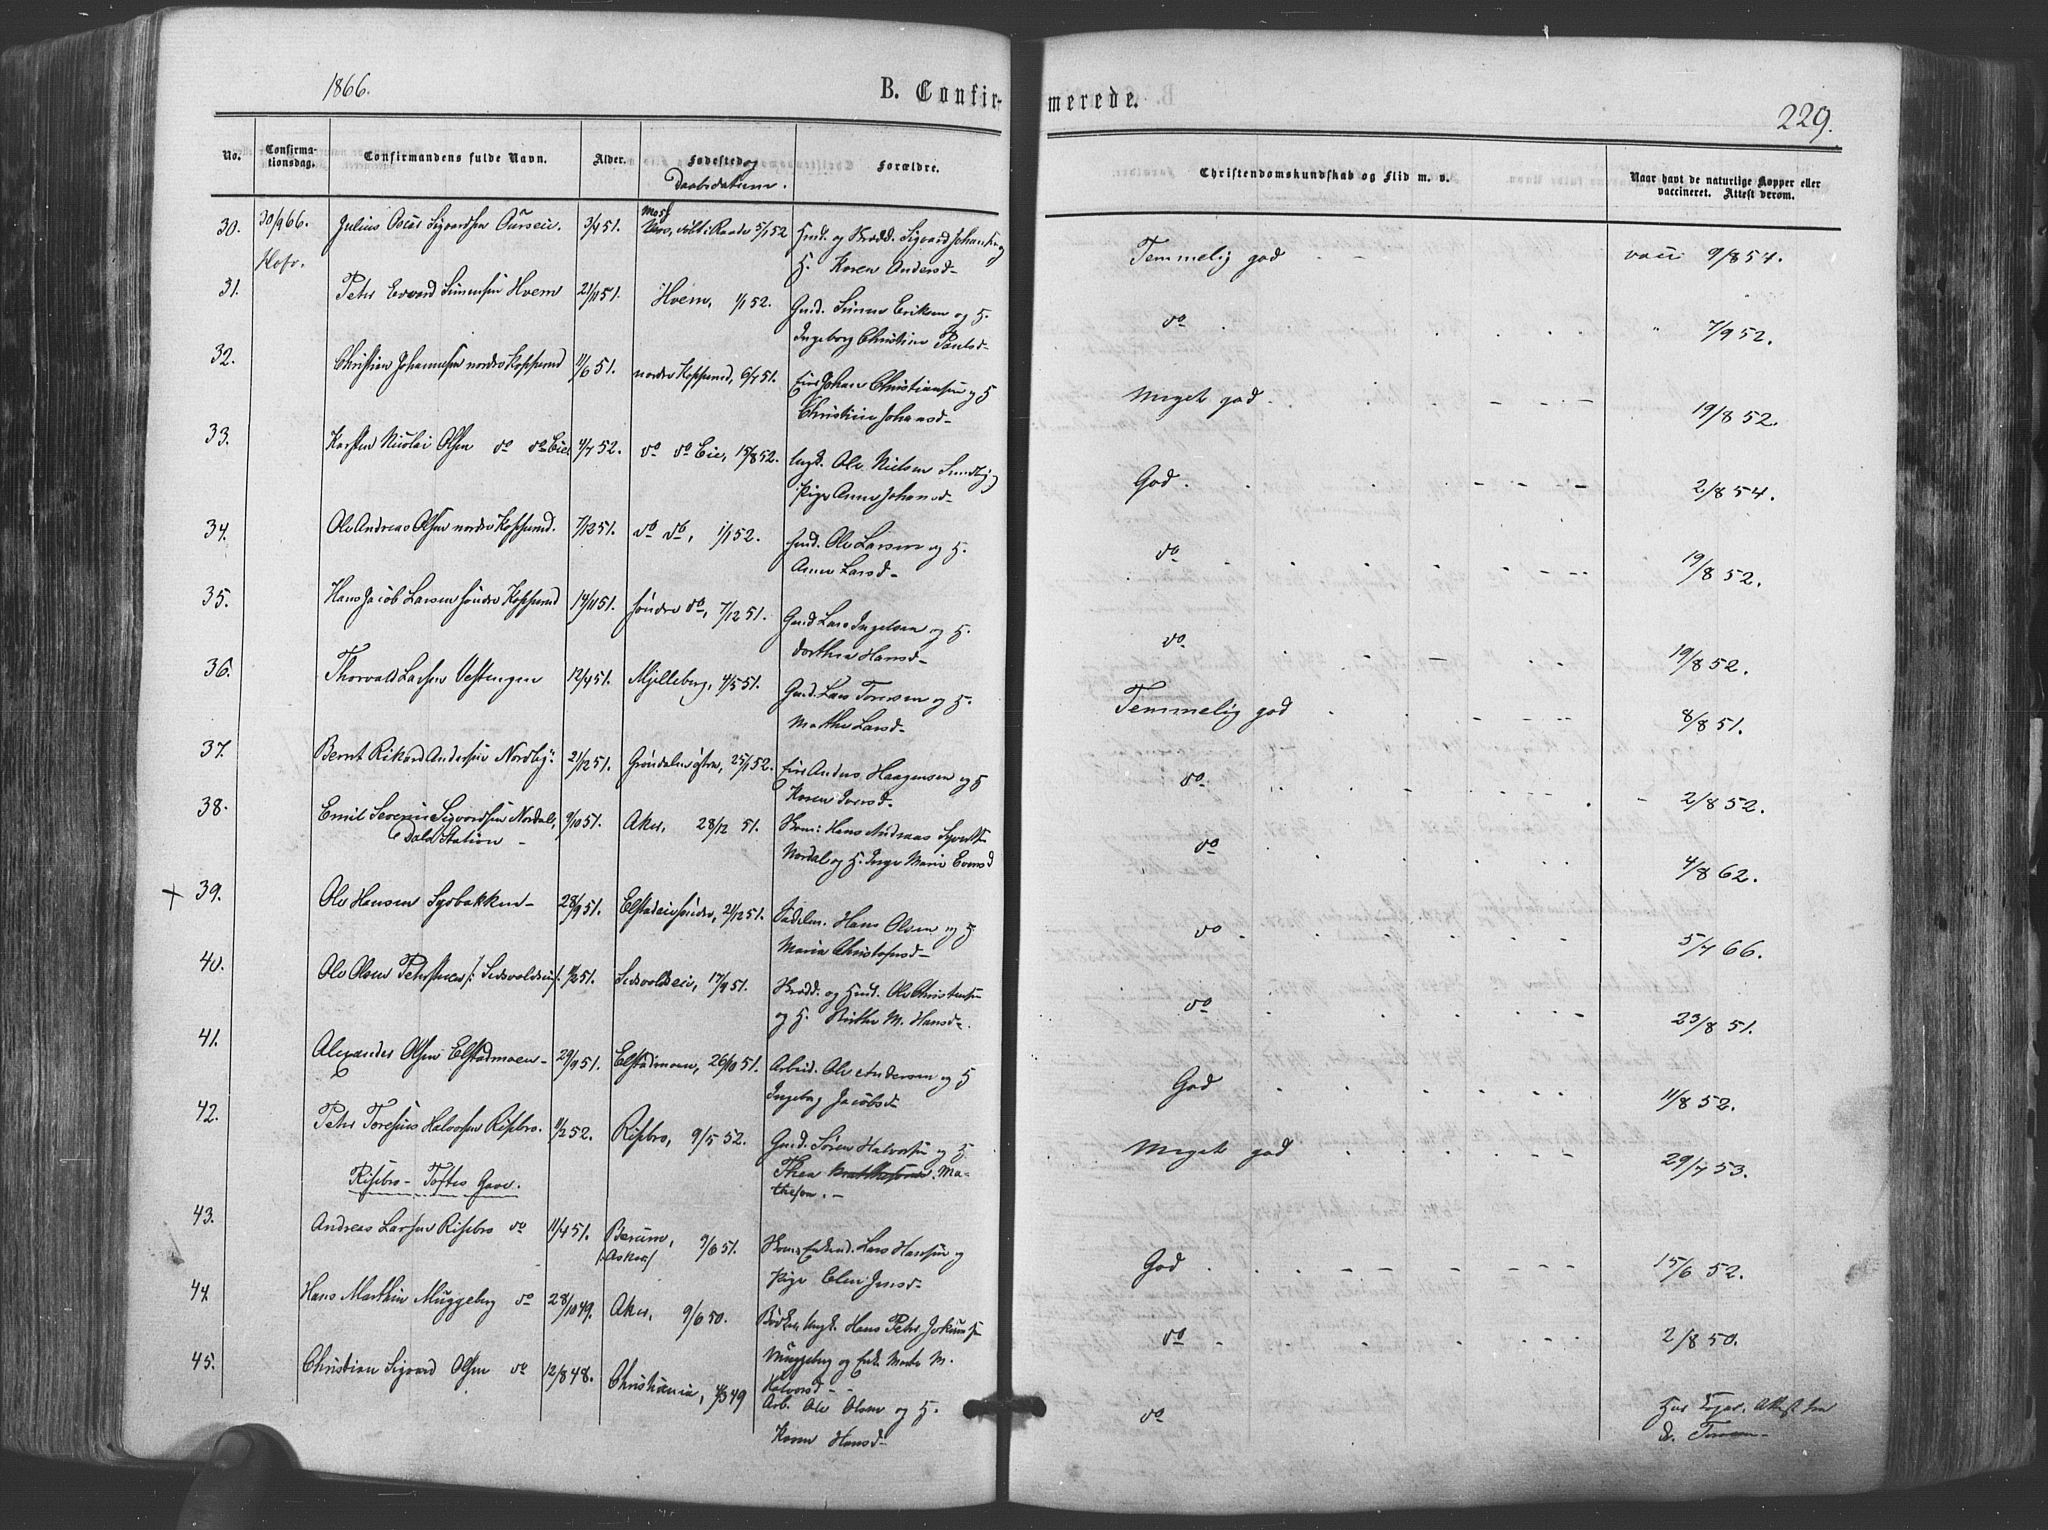 1866.
B. Confir-
merede.
229.
No.
Confirma-
tionsdag.
Confirmandens fulde Navn.
Alder.
Fødested og
Daabsdatum.
Forældre.
Christendomskundskab og Flid m. v.
Naar havt de naturlige Kopper eller
vaccineret. Attest derom.
30. 30/9 66. Julius Oscar Sigvardsen Aurseie. 3/4 51. Moss, döbt i Raade 5/1 52 Huusm. og Sigvard Johansen og
H. Karen Andersd- Temmelig god vacc 9/8 54.
31. Peter Edvard Simensen Hvem 21/11 51. Hvem, 1/1 52. Gmd. Simen Eriksen og H.
Ingeborg Christine Paulsd- do 7/9 52.
32. Christian Johannesen nordre Kopperud 11/6 51. nordre Kopperud, 6/7 51. Eier Johan Christiansen og H
Christine Johansd- Meget god 19/8 52.
33. Karsten Nicolai Olsen do do Eie 4/7 52. do do Eie, 15/8 52. Ungk. Ole Nielsen Sundby og
Pige Anne Johansd- God 2/8 54.
34. Ole Andreas Olsen nordre Kopperud. 7/12 51. do do, 1/1 52. Ole Larsen og H.
Anne Larsd- do 19/8 52.
35. Hans Jacob Larsen söndre Kopperud 14/11 51. söndre do, 7/12 51. Gmd Lars Ingelsen og H.
Dorthea Hansd- do 19/8 52.
36. Thorvald Larsen Vestengen 12/4 51. Mjelleberg, 4/5 51. Gmd. Lars Toresen og H.
Marthe Larsd- Temmelig god 8/8 51.
37. Bernt Rikard Andersen Nordby 21/12 51. Gröndalen östre, 25/1 52. Eier Anders Haagensen og H
Karen Iversd- do 2/8 52.
38. Emil Severin Sigvardsen Nordal, 9/10 51. Aker, 28/12 51. Hans Andreas
Dals Station Nordal og H. Inger Marie Evensd do 4/8 62.
+ 39. Ole Hansen Sydbakken- 28/9 51. Elstadeie söndre, 21/12 51. Hans Olsen og H
Maria Christofersd- do 5/7 66.
40. Ole Olsen 51. Eidsvoldseie, 17/9 51. og Ole Christensen
og H. M. Hansd- do 23/8 51.
41. Alexander Olsen Elstadmoen- 29/9 51. Elstadmoen, 26/10 51. Arbeid. Ole Andersen og H
Ingeborg Jacobsd- God 11/8 52.
42. Peter Toresius Halvorsen Risebro. 11/2 52. Risebro, 9/5 52. Gmd. Sören Halvorsen og H
Thea Ma-
theson.- Meget god 29/7 53.
Risebro- Toftes Gave.
43. Andreas Larsen Risebro do 11/4 51. Berum, 9/6 51. Lars Hansen og
(Asker) Pige Elen Jensd- God 15/6 52.
44. Hans Marthin Muggeberg do 28/10 49. Aker, 9/6 50. Bödker, Ungk. Hans Peter
Muggeberg og Enk. Marte M.
Halvorsd- do 2/8 50.
45. Christian Sigvard Olsen do 12/8 48. Christiania, 4/3 49 Arb. Ole Olsen og H.
Karen Hansd- do Har Attest fra